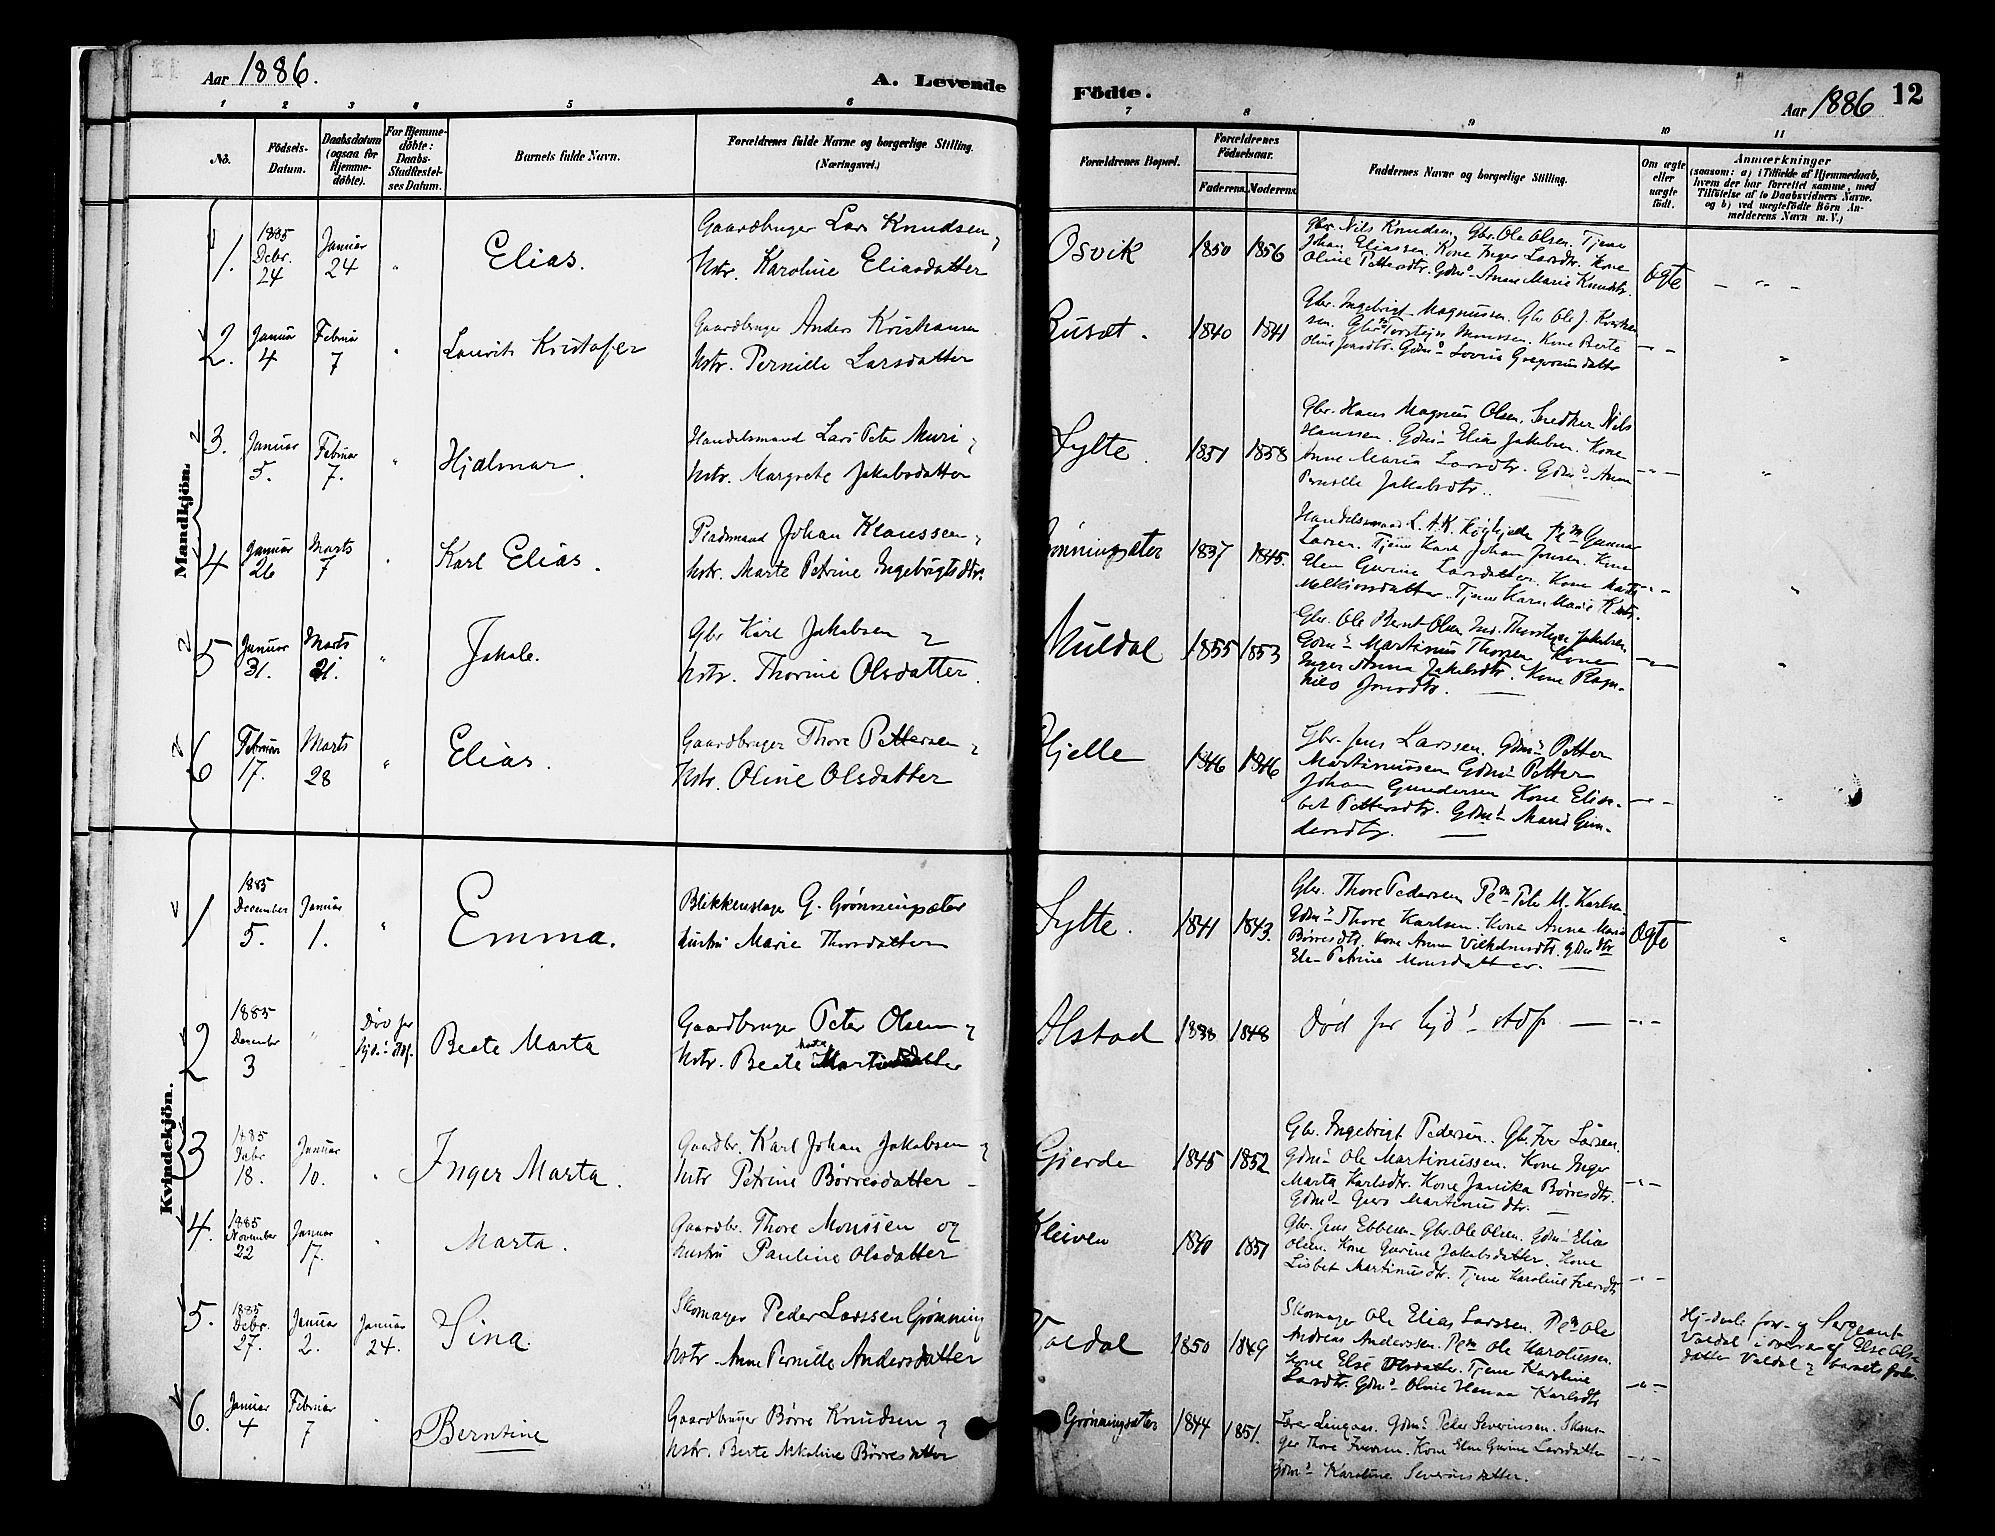 Aar 1886.
A. Levende
Födte.
Aar 1886
12
1 2 3 4 5 6 7 8 9 10 11
No.
Födsels-Datum.
Daabsdatum (ogsaa for Hjemme-döbte).
For Hjemme-döbte: Daabs-Stadfæstel-ses Datum.
Barnets fulde Navn.
Forældrenes fulde Navne og borgerlige Stilling. (Næringsvei.)
Forældrenes Bopæl.
Forældrenes Födselsaar.
Faderens. Moderens.
Faddernes Navne og borgerlige Stilling.
Om ægte eller uægte födt.
Anmærkninger
(saasom: a) i Tilfælde af Hjemmedaab,
hvem der har forrettet samme, med
Tilföielse af to Daabsvidners Navne,
og b) ved uægtefödte Börn An-
melderens Navn m. V.)
Mandkjön.
1. 1885 Decbr. 24 Januar 24 " Elias.
Gaardbruger Lars Knudsen
Hstr. Karoline Eliasdatter
Osvik 1850 1856
Gbr. Nils Knudsen, Gbr. Ole Olsen. Tjener
Johan Eliassen. Kone Inger Larsdtr. Kone
Oline Pettersdtr. Gdms Anne Marie Knudsdtr.
Ægte
2. Januar 4 Februar 7 " Laurits Kristofer
Gaardbruger Anders Kristiansen
Hstr. Pernille Larsdatter
1840 1841
Gbr. Ingebrigt Magnussen. Gbr. Ole J.
Kone Berte
3. Januar 5. Februar 7. " Hjalmar.
Handelsmand Lars Peter Muri
Hstr. Margrete Jakobsdatter
Sylte. 1851 1858
Gbr. Hans Magnus Olsen. Snedker Nils
Hanssen. Gdms Elias Jakobsen. Kone
Anne Maria Larsdtr. Gdms Anne
Pernille Jakobsdtr.
4 Januar 26 Marts 7 " Karl Elias.
Pladsmand Johan Klaussen
Hstr. Marte Petrine Ingebrigtsdtr.
Grönningsæter 1837 1845.
Handelsmand L. A. K. Pm Gunnar
Larsen. Tjener Karl Johan Jensen. Kone
Elen Gurine Larsdatter. Kone Marte
Melkiorsdatter. Tjener Karen Marie
5 Januar 31. Marts 21. " Jakob.
Gbr Karl Jakobsen
Hstr. Thorine Olsdatter.
Muldal 1855 1853
Gbr. Ole Bernt Olsen Thorsten Jakobsen
Gdms Martinus Thorsen Kone
Inger Anna Jakobsdtr. Kone Ragn-
hild
6 Februar 17. Marts 28 " Elias.
Gaardbruger Thore Pettersen
Hstr. Oline Olsdatter
Hjelle 1846 1846
Gbr. Jens Larssen. Gdms Petter
Martinussen Gdms Petter
Johan Gundersen Kone Elisa-
bet Pettersdtr. Gdms Marie Gun-
dersdtr.
Kvindekjön.
1 1885 December 5. Januar 1. " Emma.
Blikkenslager G. Grönningsæter
Hustru Marie Thorsdatter
Sylte. 1841 1843.
Gbr. Thore Pedersen Pm Peter M. Karlsen
Gdms Thore Karlsen. Kone Anne Marie
Börresdtr. Kone Anne Vilhelmsdtr.
Petrine Monsdatter.
Ægte
2 1885 December 3 Död før Beate Marta
Gaardbruger Peter Olsen
Hstr. Beate Marta
Alstad 1838 1848
Död før
3 1885 Decbr 18. Januar 10. " Inger Marta.
Gaardbr. Karl Johan Jakobsen
Hstr Petrine Börresdatter
Gjerde 1845 1852
Gbr. Ingebrigt Pedersen. Gbr. Iver Larsen.
Gdms Ole Martinussen. Kone Inger
Marta Karlsdtr. Kone Janika Börresdtr.
Gdms Martinusdtr.
4. 1885 November 22 Januar 17. " Marta.
Gaardbr. Thore Monssen og
Hustru Pauline Olsdatter
Kleiven 1840 1851
Gbr. Jens Ebbesen Gbr. Ole Olsen. Gdms Elias
Olsen. Kone Gurine Jakobsdatter. Kone
Lisbet Martinusdtr. Tjener Karoline Iversdtr
5. 1885 Decbr. 27. Januar 2. Januar 24. Sina.
Skomager Peder Larssen Grönning
Hstr. Anne Pernille Andersdatter
Valdal 1850 1849
Skomager Ole Elias Larssen. Pm Ole
Andreas Anderssen. Pm Ole Karolussen.
Kone Else Olsdatter. Tjener Karoline
Larsdtr. Gdms Oline Hanna Karlsdtr
Sergeant
Valdal i overvær af Else Ols-
datter Valdal barnets fader
6. Januar 4 Februar 7 " Berntine
Gaardbruger Börre Knudsen
Hstr. Berte Nikoline Börresdatter
Grönningsæter 1844 1851.
Gdms Peder Severinsen. Skoma-
ger Thore Iversen. Kone Elen Gurine Larsdatter
Gdms Karoline Severinsdatter.